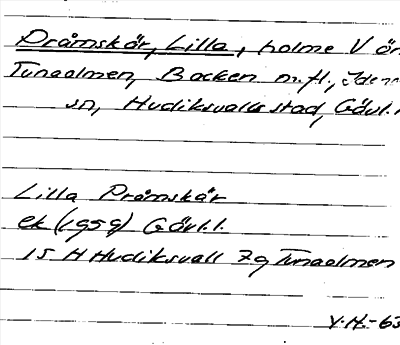 Pråmskär, Lilla, holme V ön
Tunaolmen, Backen m.fl., Idenors
sn, Hudiksvalls stad, Gävl.l.
Lilla Pråmskär
ek (1959) Gävl.l.
15 H Hudiksvall 7g Tunaolmen
V.H.-63